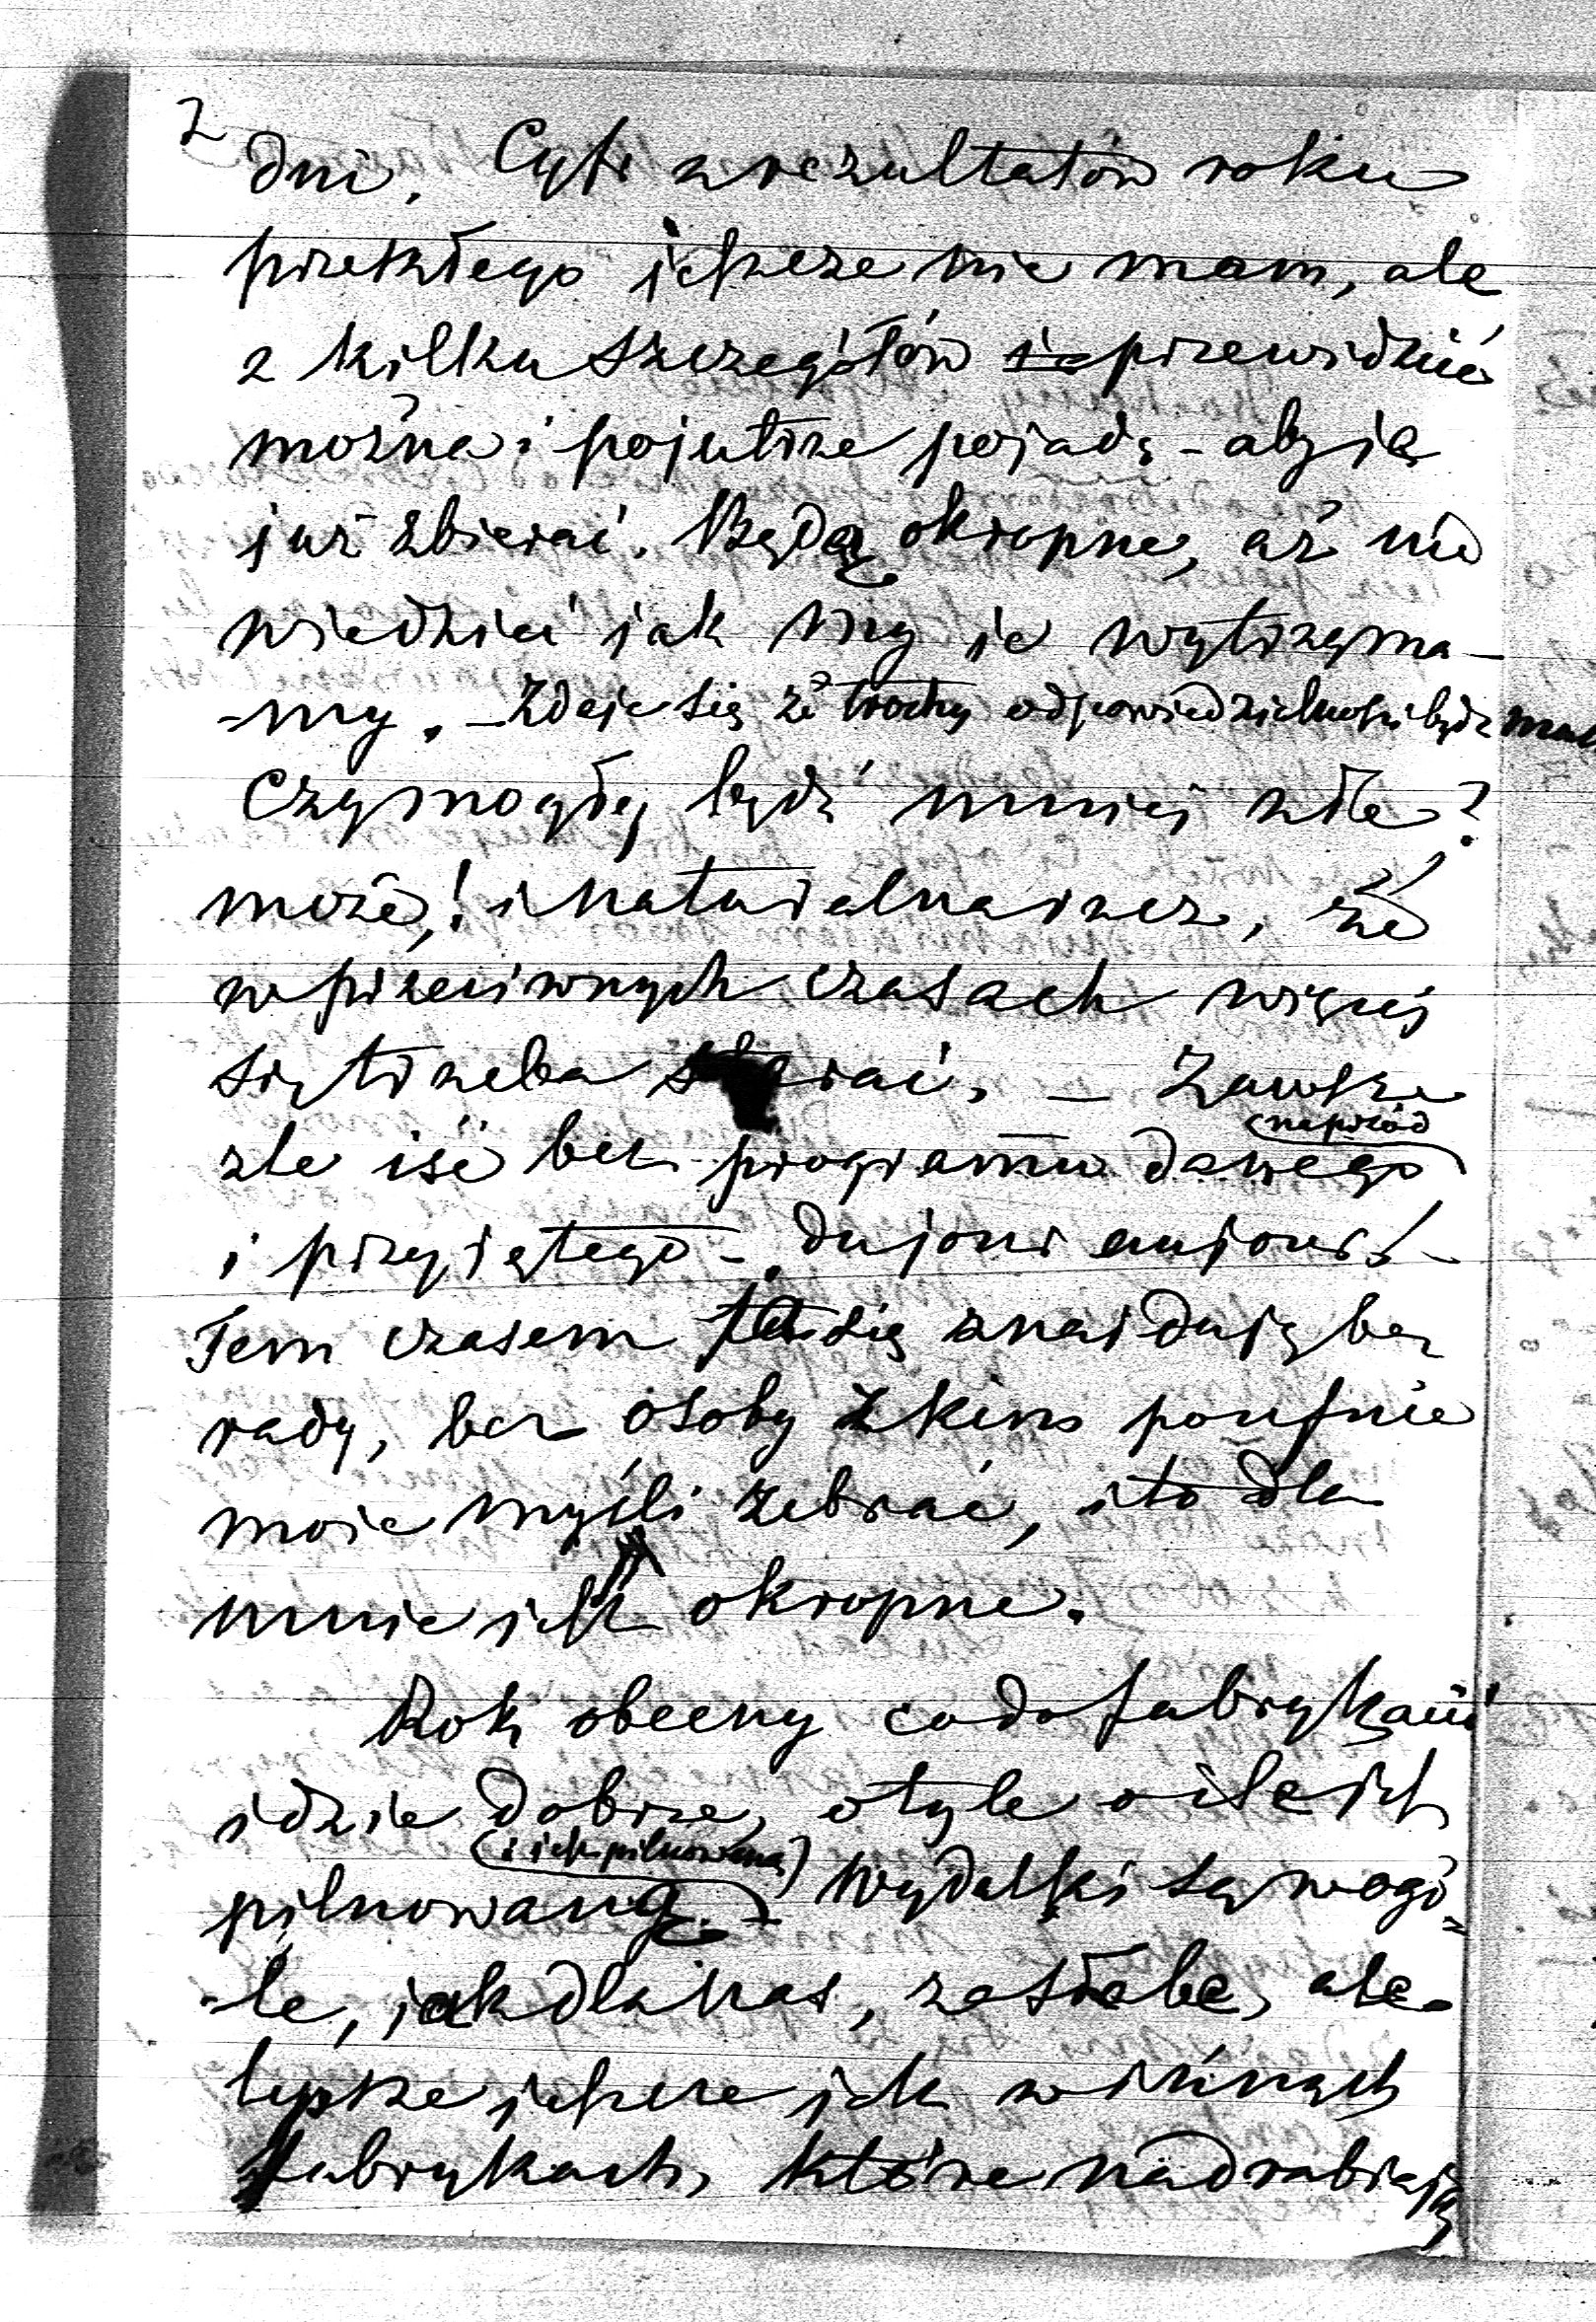 2
dni. Cyfr z rezultatów roku
przeszłego jeszcze nie mam, ale
z kilku szczegółów je przewidzieć
można i pojutrze pojadę - aby je
już zbierać. Będą okropne, aż nie
wiedzieć jak my je wytrzyma-
-my. - Zdaje się że trochę odpowiedzialności będę
Czy mogło być mniej źle?
może,! i naturalna rzecz, że
w przeciwnych czasach więcej
się trzeba starać. - Zawsze
naprzód
źle iść bez programu danego
i przyjętego -
Tem czasem się znajduję bez
rady, bez osoby z kim poufnie
moje myśli zebrać, i to dla
mnie jest okropne.
Rok obecny co do fabrykacii
idzie dobrze, o tyle o ile jest
(i jest pilnowaną)
pilnowaną. - Wydatki są w ogó=
-le, jak dla nas, za słabe, ale
lepsze jeszcze jak w innych
fabrykach, które nadrabiają